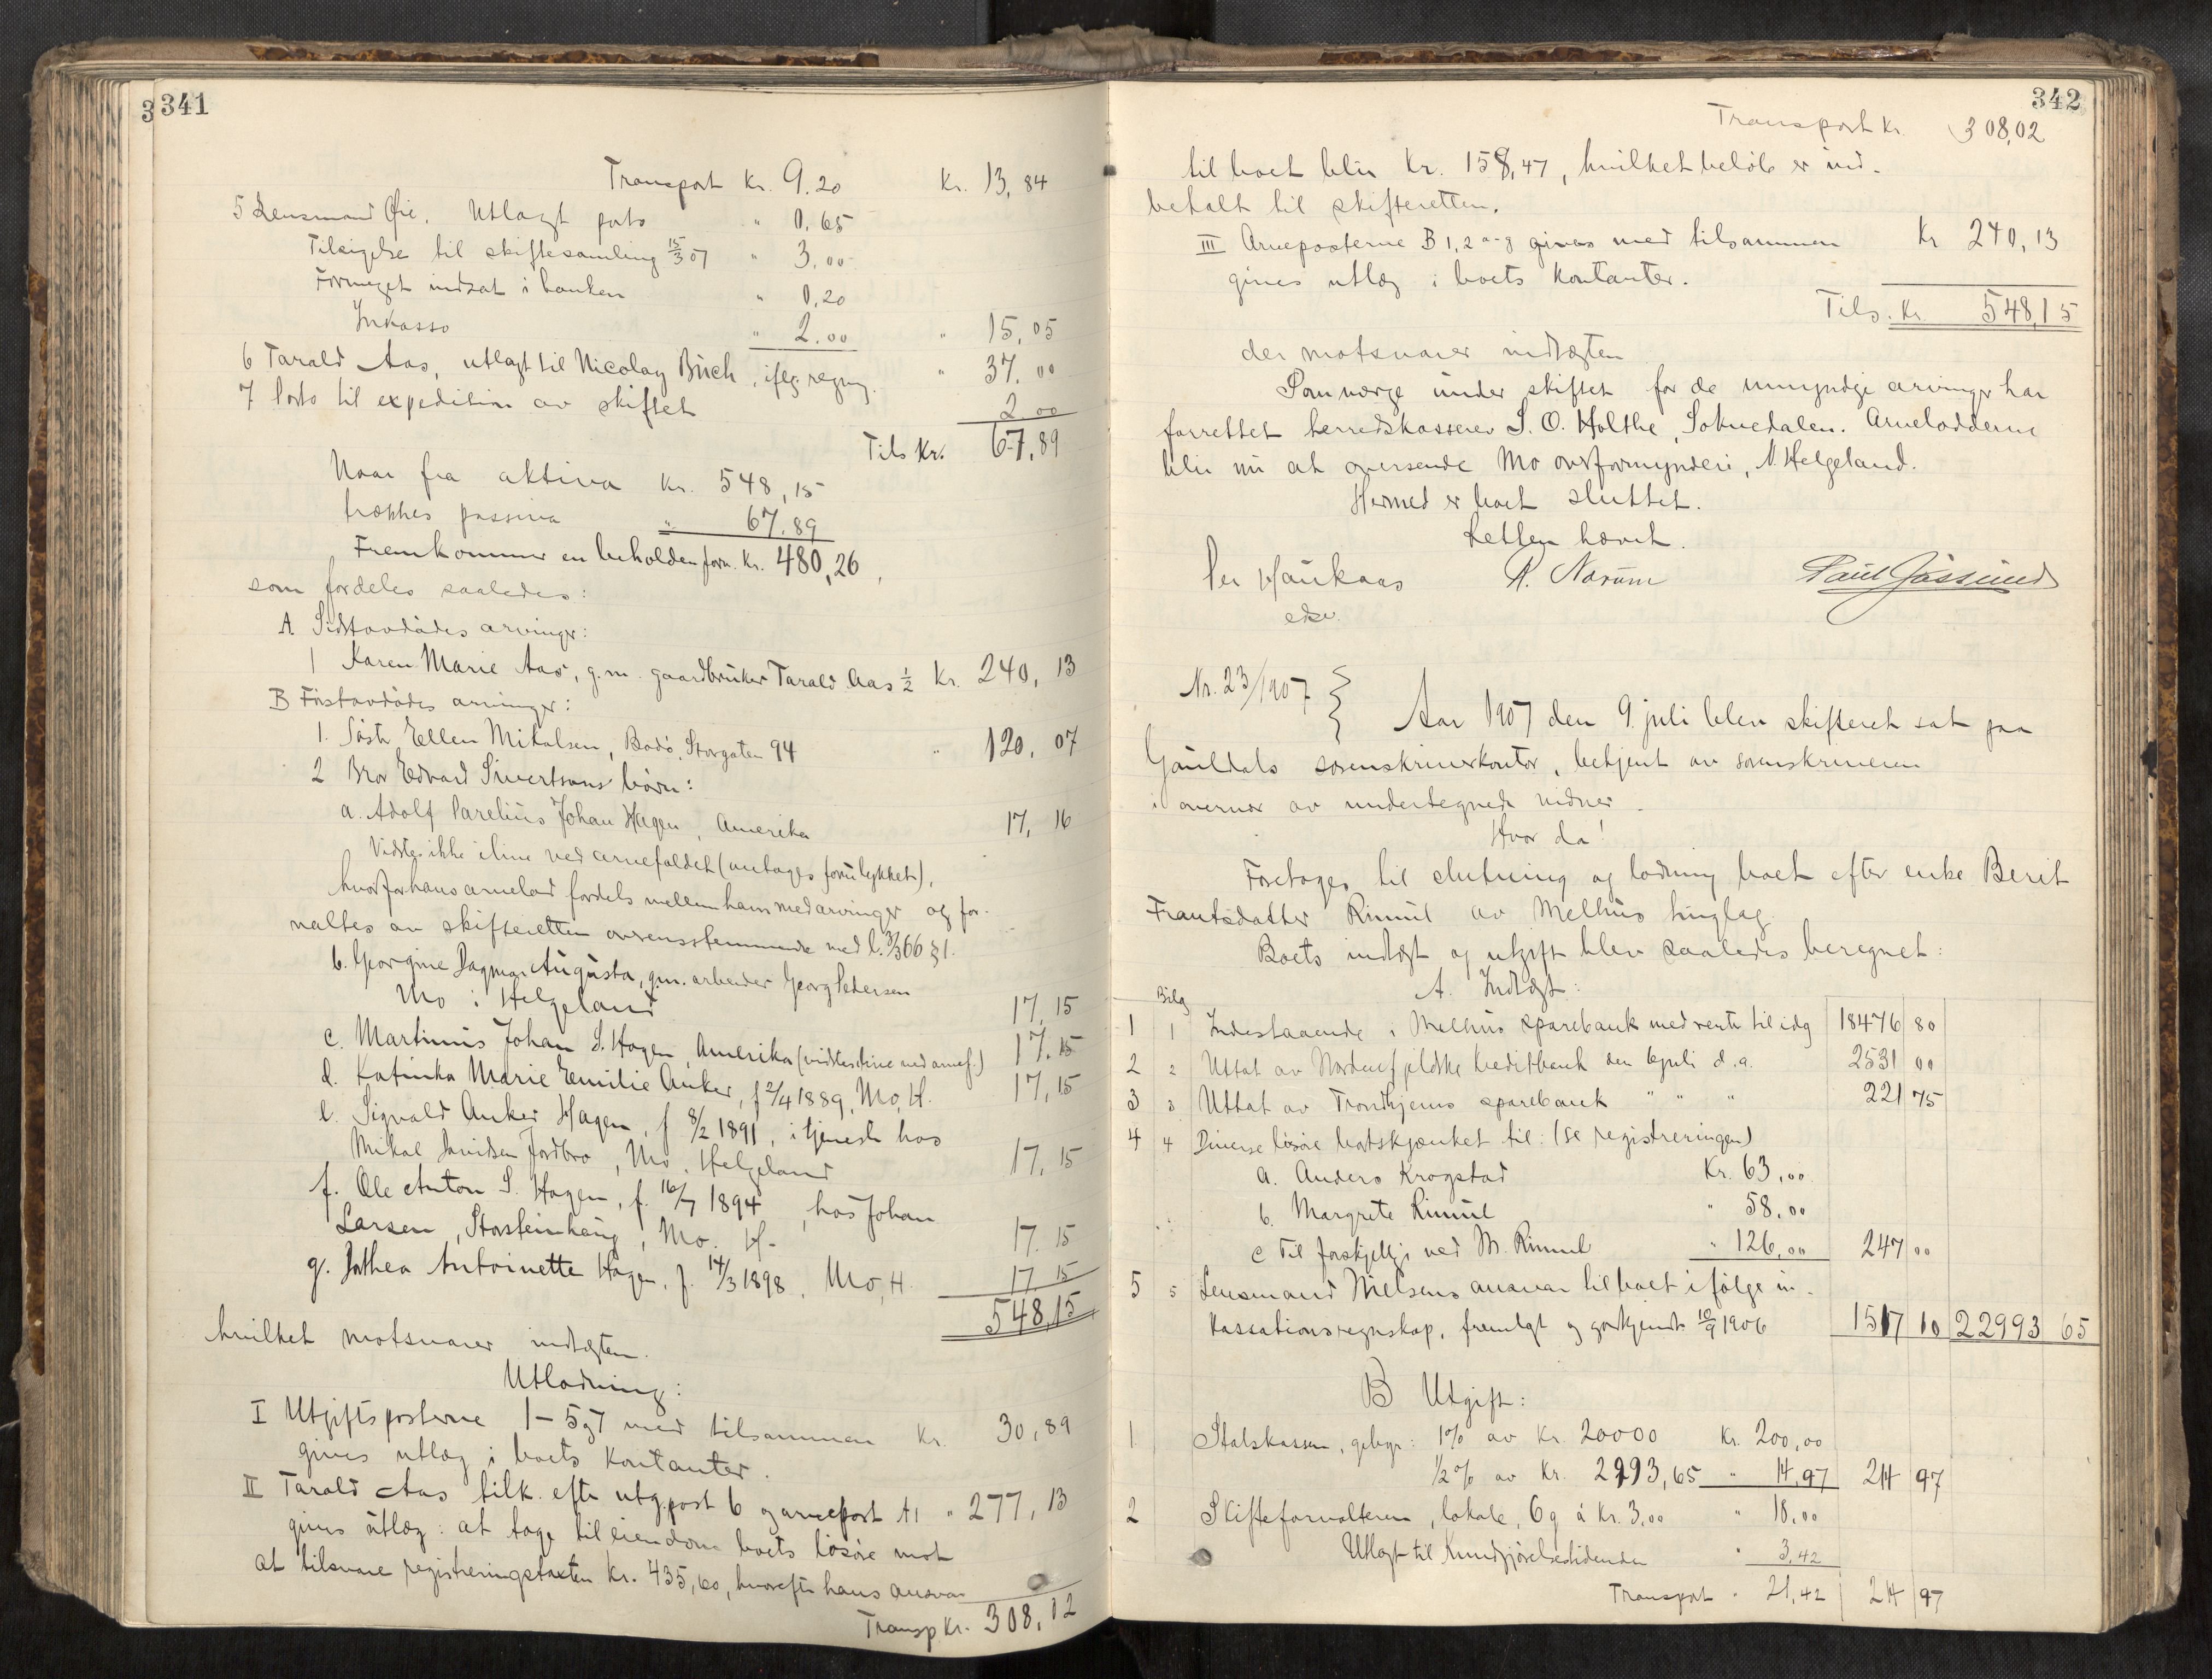 3 341
Transport Kr. 9.20 Kr. 13,84
5 Lensmand Øie. Utlagt porto " 0.65
Tilsigelse til skiftesamling 15/3 07 " 3,00
Formeget indsat i banken " 0,20
Inkasso " 2.00 " 15,05
6 Tarald Aas, utlagt til Nicolay Buch, iflg regng. " 37.00
7 Porto til expedition av skiftet 2.00
Tils Kr. 67,89
Naar fra aktiva Kr. 548,15
trækkes passiva " 67.89
Fremkommer en beholden form. Kr. 480,26,
som fordeles saaledes:
A. Sidstavdødes arvinger:
1 Karen Marie Aas, g.m. gaardbruker Tarald Aas ½ Kr. 240,13
B Førstavdødes arvinger:
1. Søster Ellen Mikalsen, Bodø, Storgaten 94 " 120,07
2 Bror Edvard Sivertsens børn:
a. Adolf Parelius Johan Hagen, Amerika 17,16
Vidstes ikke ilive ved arvefaldet (antages forulykket),
hvorfor hans arvelod fordeles mellem hans medarvinger og for-
valtes av skifteretten overensstemmende med l. 3/3 66 § 1.
b. Georgine Dagmar Augusta, g.m. arbeider Georg Pedersen
Mo i Helgeland 17,15
c. Martinus Johan S. Hagen, Amerika (vidstes ilive ved arvef.) 17.15
d. Katinka Marie Emilie Anker, f 2/4 1889, Mo, H. 17,15
e. Sigvald Anker Hagen, f 8/2 1891, i tjeneste hos
Mikal Davidsen Jordbro, Mo, Helgeland 17,15
f. Ole Anton S. Hagen, f. 16/7 1894, hos Johan
Larsen, Storsteinhaug, Mo. H. 17.15
g. Dothea Antoinette Hagen, f. 14/3 1898, Mo, H. 17 15
548,15
hvilket motsvarer indtægten.
Utlodning:
I Utgiftsposterne 1-5 og 7 med tilsammen Kr. 30,89
gives utlæg i boets kontanter.
II Tarald Aas tilk. efter utg.post 6 og arvepost A1 " 277,13
gives utlæg: at tage til eiendom boets løsøre mot
at tilsvare registreringstaxten Kr. 435,60, hvorefter hans ansvar
Transp Kr. 308,02
342
Transport Kr. 308,02
til boet blir Kr. 158,47, hvilket beløb er ind-
betalt til skifteretten.
III Arveposterne B 1, 2 a-g gives med tilsammen Kr 240,13
gives utlæg i boets kontanter.
Tils. Kr. 548,15
der motsvarer indtægten
Som værge under skiftet for de umyndige arvinger har
forrettet herredskasserer S. O. Holthe, Soknedalen. Arvelodderne
blir nu at oversende Mo overformynderi, N. Helgeland.
Hermed er boet sluttet.
Retten hævet.
Per Haukaas R. Narum Paul Jossund
edsv.
Nr. 23/1907 } Aar 1907 den 9. juli blev skifteret sat paa
Gauldals sorenskriverkontor, betjent av sorenskriveren
i overvær av undertegnede vidner.
Hvor da!
Foretoges til slutning og lodning boet efter enke Berit
Frantsdatter Rimul av Melhus tinglag
Boets indtægt og utgift blev saaledes beregnet:
A. Indtægt:
Bilag
1 1 Indestaaende i Melhus sparebank med renter til idag 18476 80
2 2 Uttat av Nordenfjeldske Kreditbank den 6 juli d.a. 2531 00
3 3 Uttat av Trondhjems sparebank " " " 221 75
4 4 Diverse løsøre bortskjænket til: (se registreringen)
a. Anders Krogstad Kr. 63,00
b. Margrete Rimul " 58,00
c Til forskjellige ved M. Rimul " 126,00 247 00
5 5 Lensmand Nielsens ansvar til boet ifølge in-
kassationsregnskap, fremlagt og godkjendt 10/9 1906 1517 10 22993 65
B Utgift:
1 Statskassen, gebyr: 1% av Kr. 20000 Kr. 200,00
½ % av Kr. 2993,65 " 14,97 214 97
2 Skifteforvalteren, lokale, 6 g á Kr. 3,00 " 18,00
Utlagt til Kundgjørelsestidenden " 3,42
Transport " 21,42 214 97